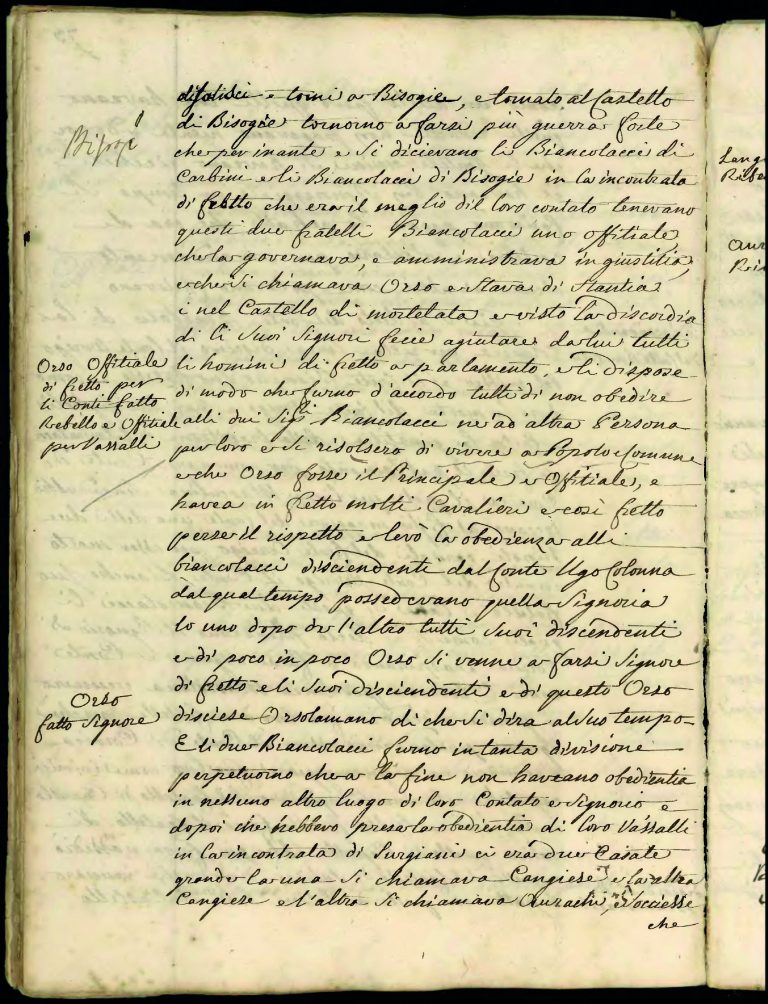 e torni a Bisogie, e tornato al Castello
Bisogi
di Bisogie tornorno a farsi più guerra forte
che per inante e si dicievano li Biancolacci di
Carbini e li Biancolacci di Bisogie in la incontrata
di fretto che era il meglio dil loro contato tenevano
questi due fratelli Biancolacci uno offitiale
che la governava, e amministrava in giustitia,
e che si chiamava Orso e stava di stantia
i nel Castello di mortelata e visto la discordia
di li suoi Signori fecie agiutare da lui tutti
li homini di fretto a parlamento, e li dispose
di modo che furno d'accordo tutti di non obedire
alli dui Sig.ri Biancolacci ne ad altra Persona
per loro e si risolsero di vivere a Popolo e Comune
e che Orso fosse il Principale e Offitiale, e
havea in fretto molti Cavalieri e cosi fretto
perse il rispetto e levò la obedienza alli
biancolacci disciendenti dal Conte Ugo Colonna
dal qual tempo possedevano quella Signoria
lo uno dopo de l'altro tutti suoi discendenti
e di poco in poco Orso si venne a farsi Signore
di fretto e li suoi disciendenti e di questo Orso
disciese Orsolamano di che si dira al suo tempo-
E li due Biancolacci furno in tanta divisione
perpetuorno che a la fine non haveano obedientia
in nessuno altro luogo di loro Contato e Signorio e
dopoi che hebbero presa la obedientia di loro Vassalli
in la incontrata di Surgiani ci era due Casate
grande la una si chiamava Cangiese e la altra
Cangiese e l'altra si chiamava Aurachi, occiesse
che
Orso Offitiale
di fretto per
li Conti fatto
Rebello e Offitiale
per Vassalli
Orso
fatto Signore